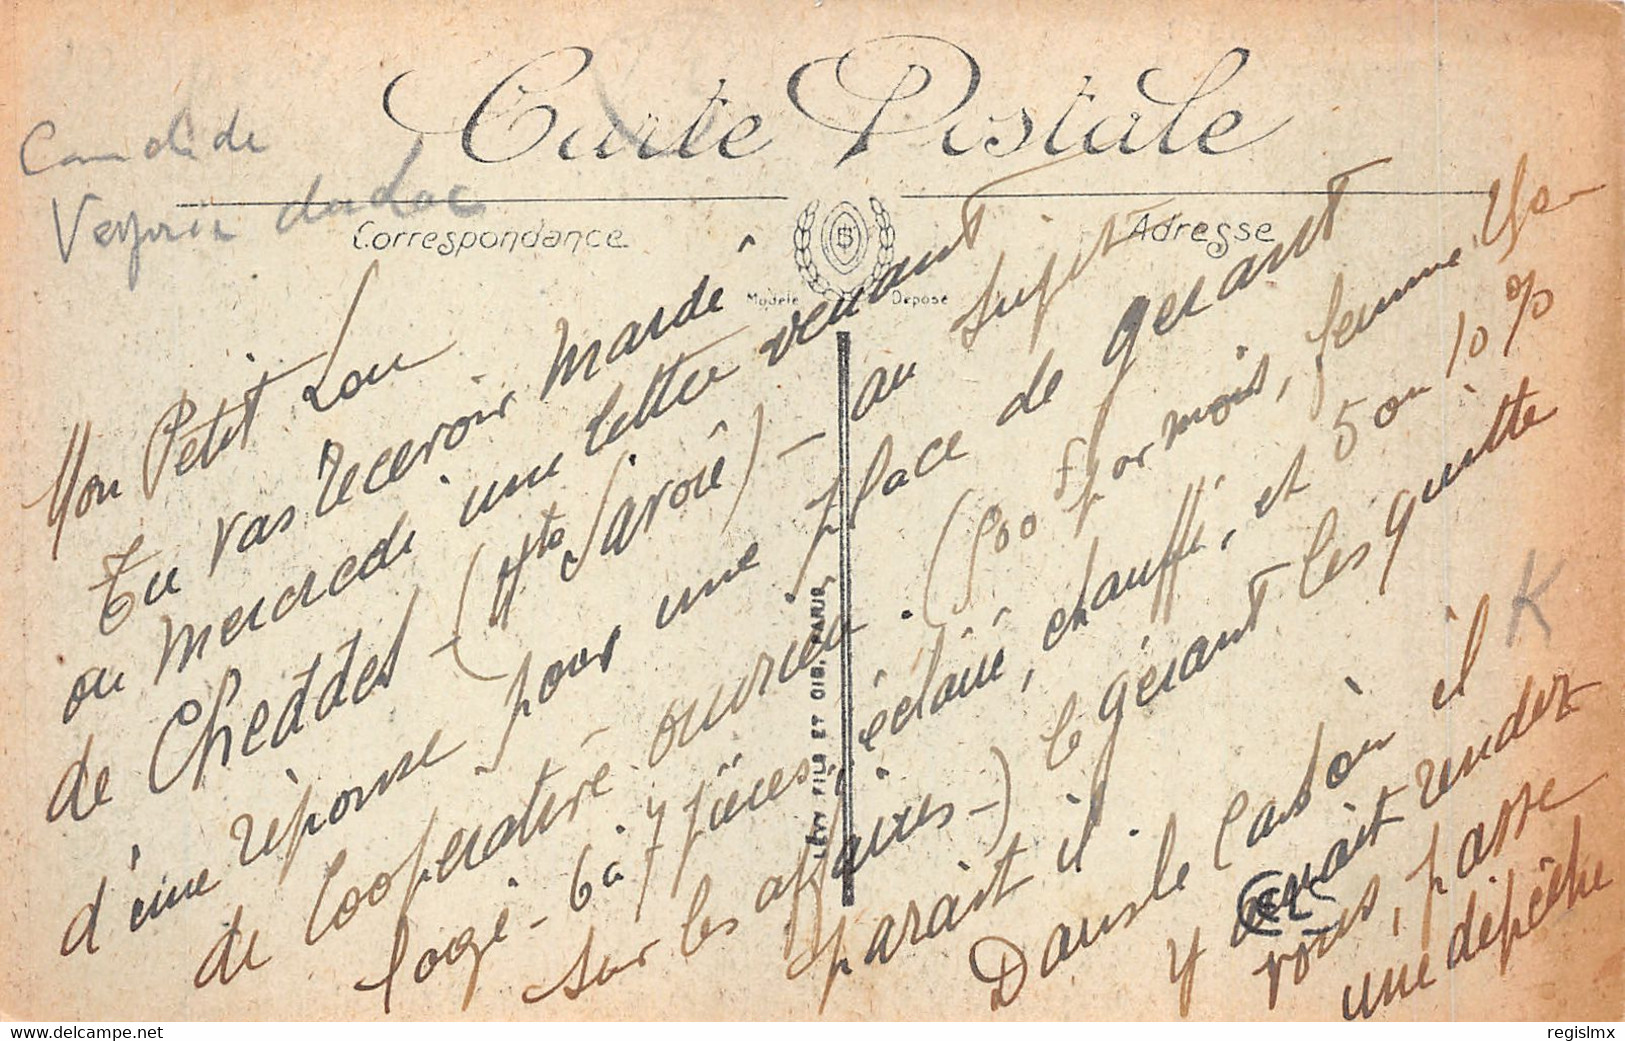 Carte Postale
Candide
Correspondance
Adresse
Modèle Déposé
LÉVY FILS ET CIE, PARIS
Mon Petit Lou
Tu vas recevoir mardi
ou mercredi une lettre venant
de Cheddes - (Hte Savoie) - au sujet
d'une réponse pour une place de gérant
de Coopérative ouvrière. (900 f par mois, femme
logé - 6 à 7 pièces, éclairé, chauffé, et 5 ou 10 %
sur les affaires -) le gérant les quitte
paraît il
Dans le cas où il
y aurait rendez
vous, passe
une dépêche
K
delcampe.net
regislmx